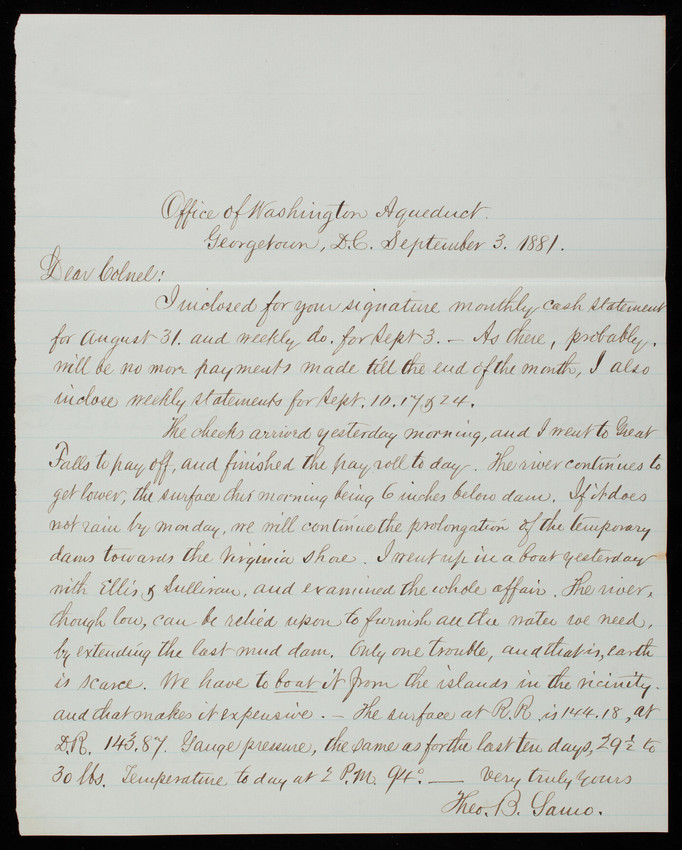 Office of Washington Aqueduct.
Georgetown, D.C. September 3. 1881.
Dear Colnel:
I inclosed for your signature monthly cash statement
for August 31. and weekly do. for Sept 3. – As there, probably,
will be no more payments made till the end of the month, I also
inclose weekly statements for Sept. 10. 17 & 24.
The checks arrived yesterday morning, and I went to Great
Falls to pay off, and finished the pay roll to day. The river continues to
get lower, the surface this morning being 6 inches below dam. If it does
not rain by monday, we will continue the prolongation of the temporary
dams towards the Virginia shore. I went up in a boat yesterday
with Ellis & Sullivan, and examined the whole affair. The river,
though low, can be relied upon to furnish all the water we need,
by extending the last mud dam. Only one trouble, and that is, earth
is scarce. We have to boat it from the islands in the vicinity.
and that makes it expensive. – The surface at R.R. is 144.18, at
D.R. 143.87. Gauge pressure, the same as for the last ten days, 29½ to
30 lbs. Temperature to day at 2 P.M. 94°. — Very truly yours
Theo. B. Samo.